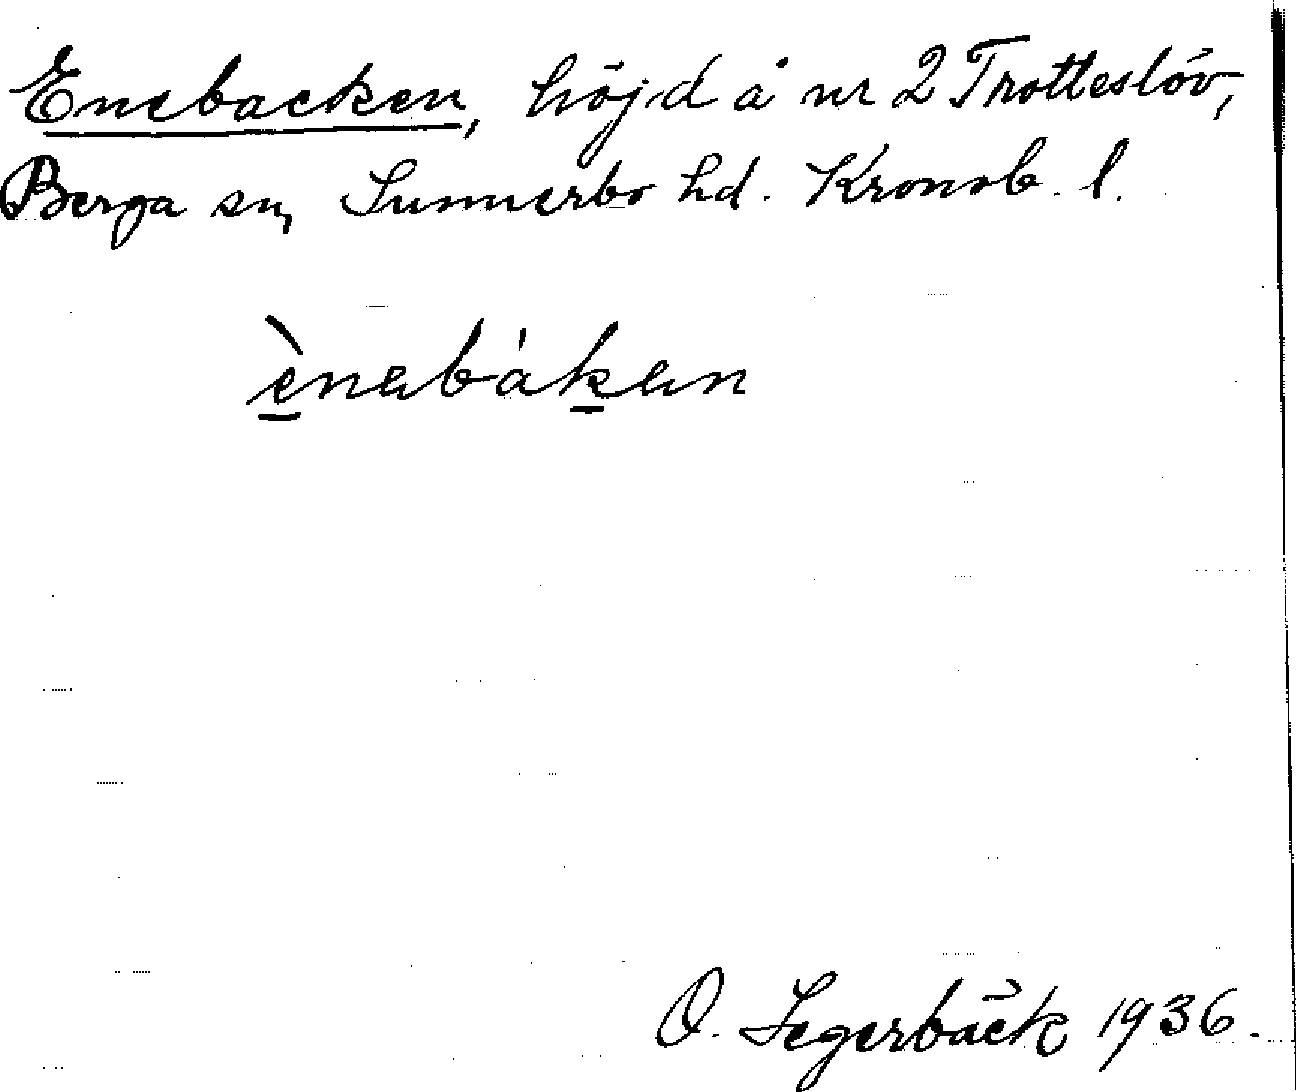 Enebacken, höjd å nr 2 Trotteslöv,
Berga sn, Sunnerbo hd. Kronob. l.
ènabàkan
O. Segerbäck 1936.